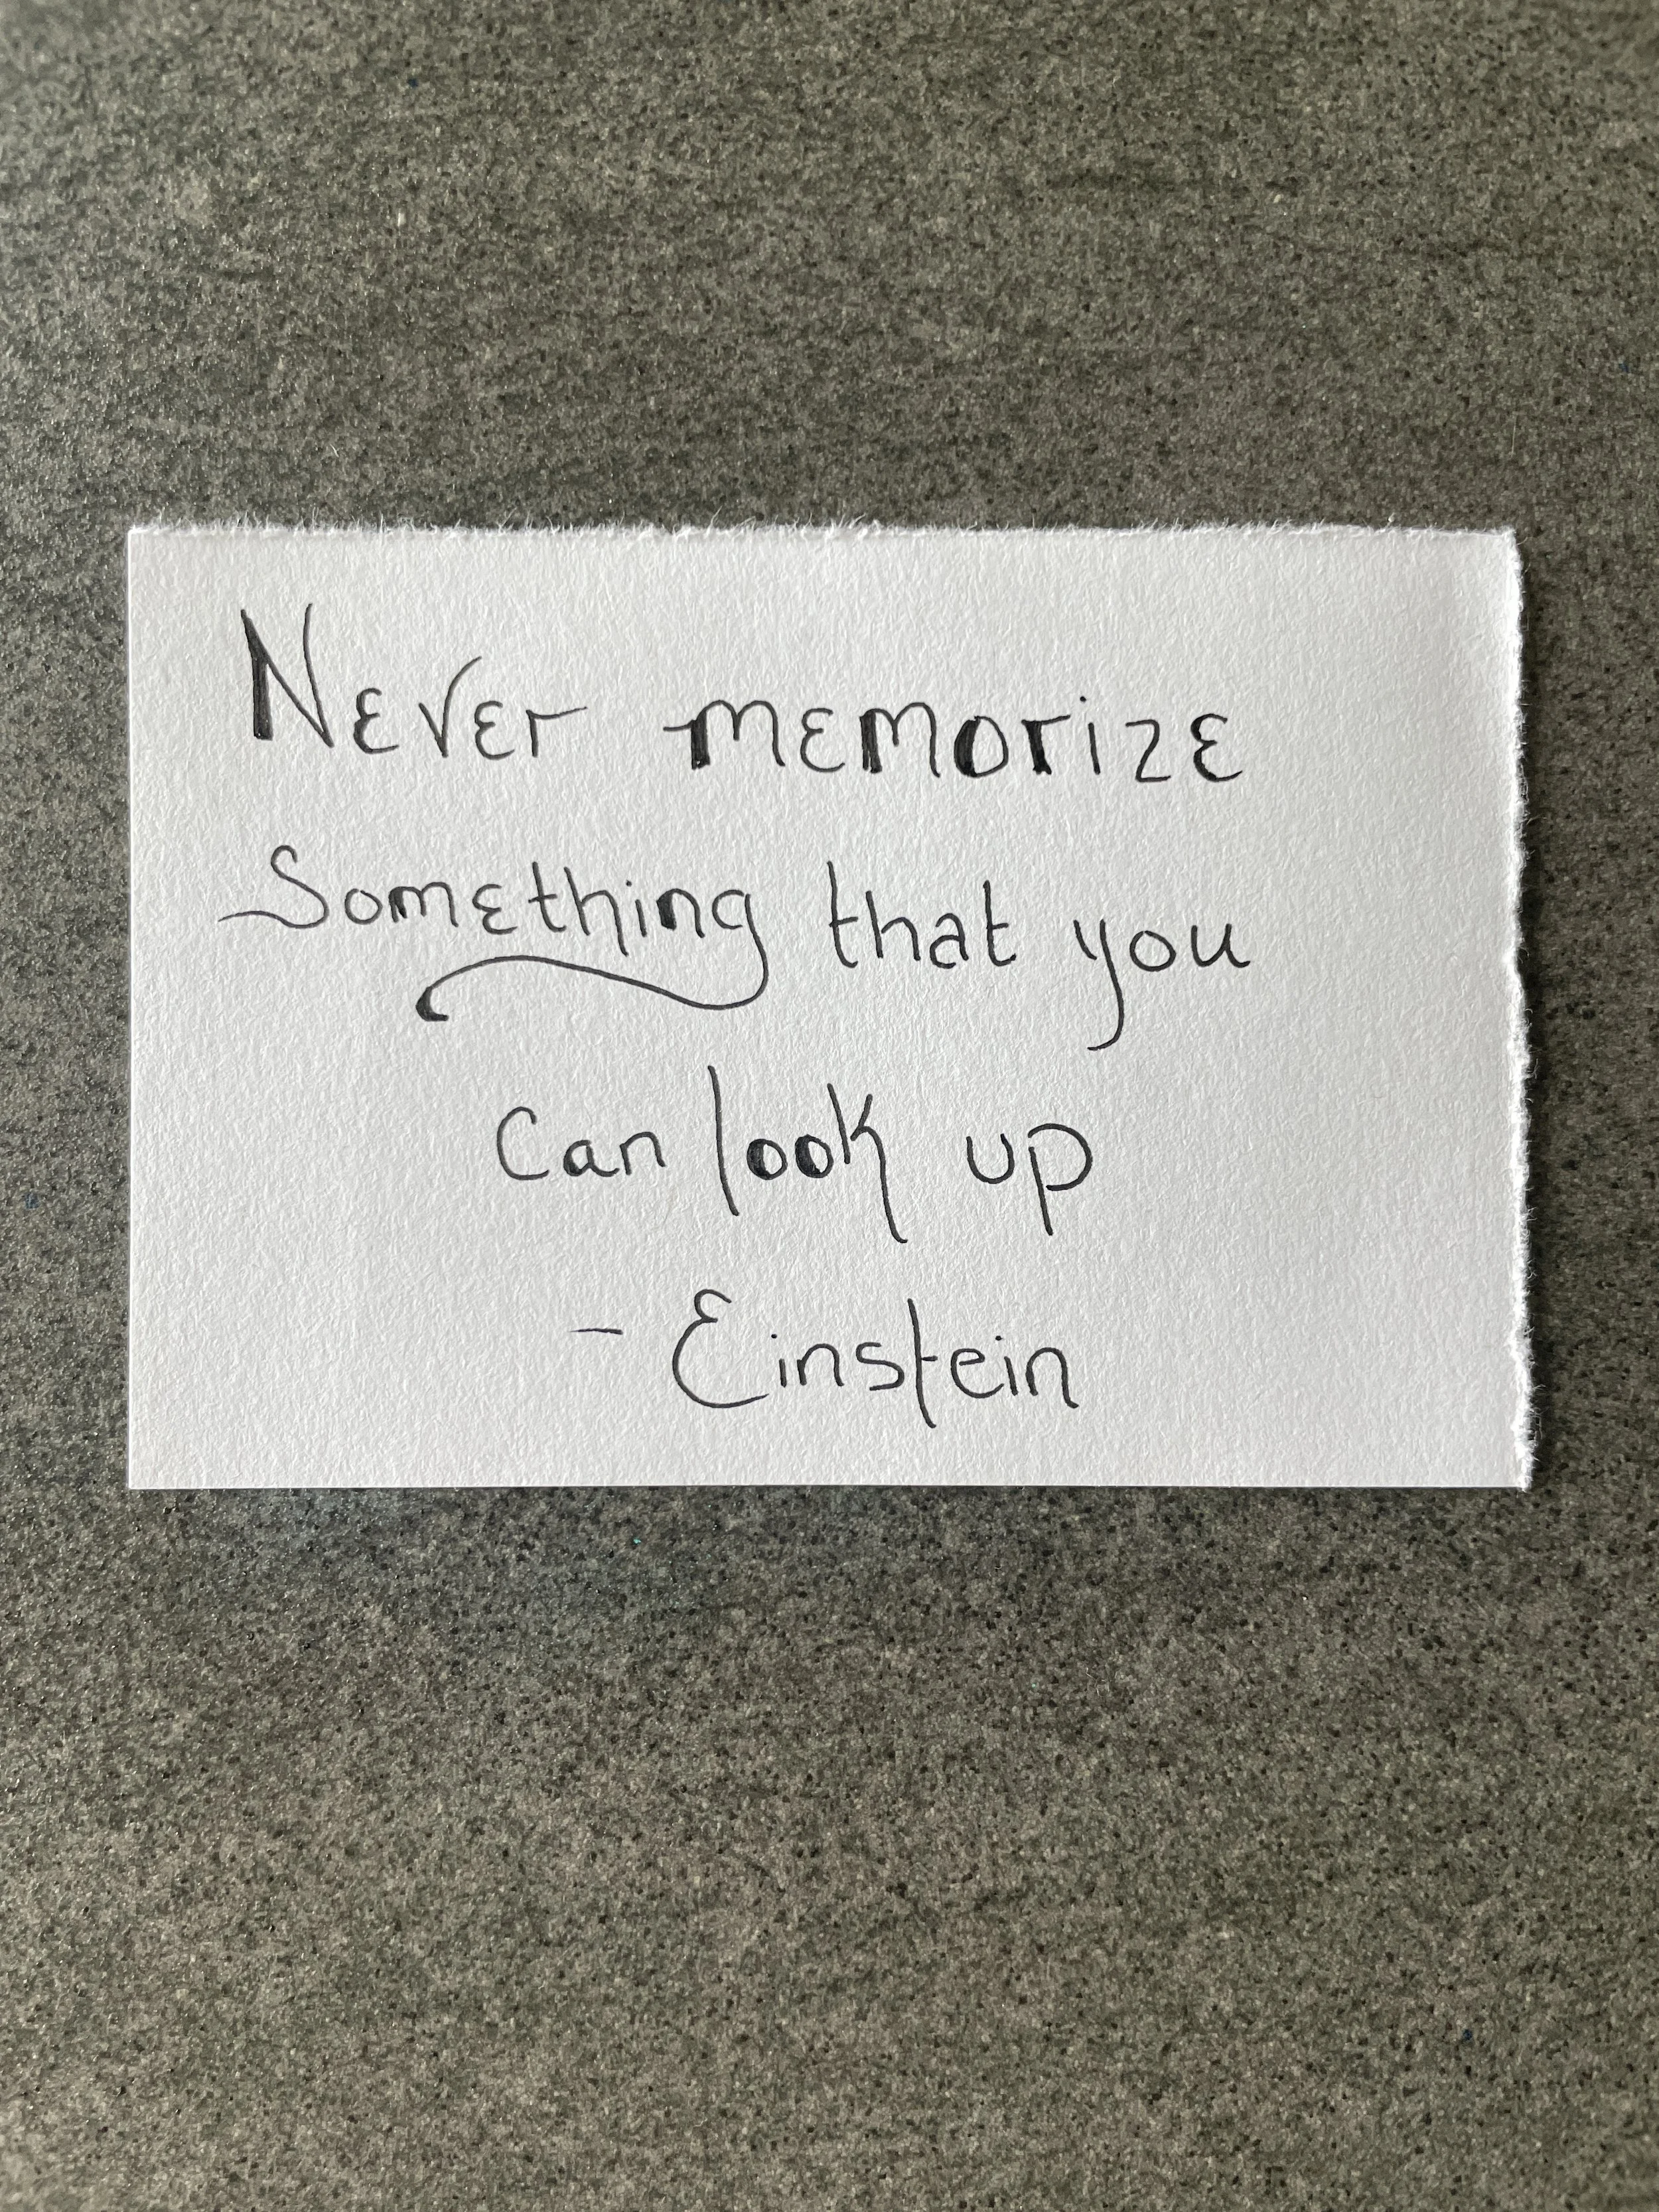 Never memorize
Something that you
Can look up
- Einstein